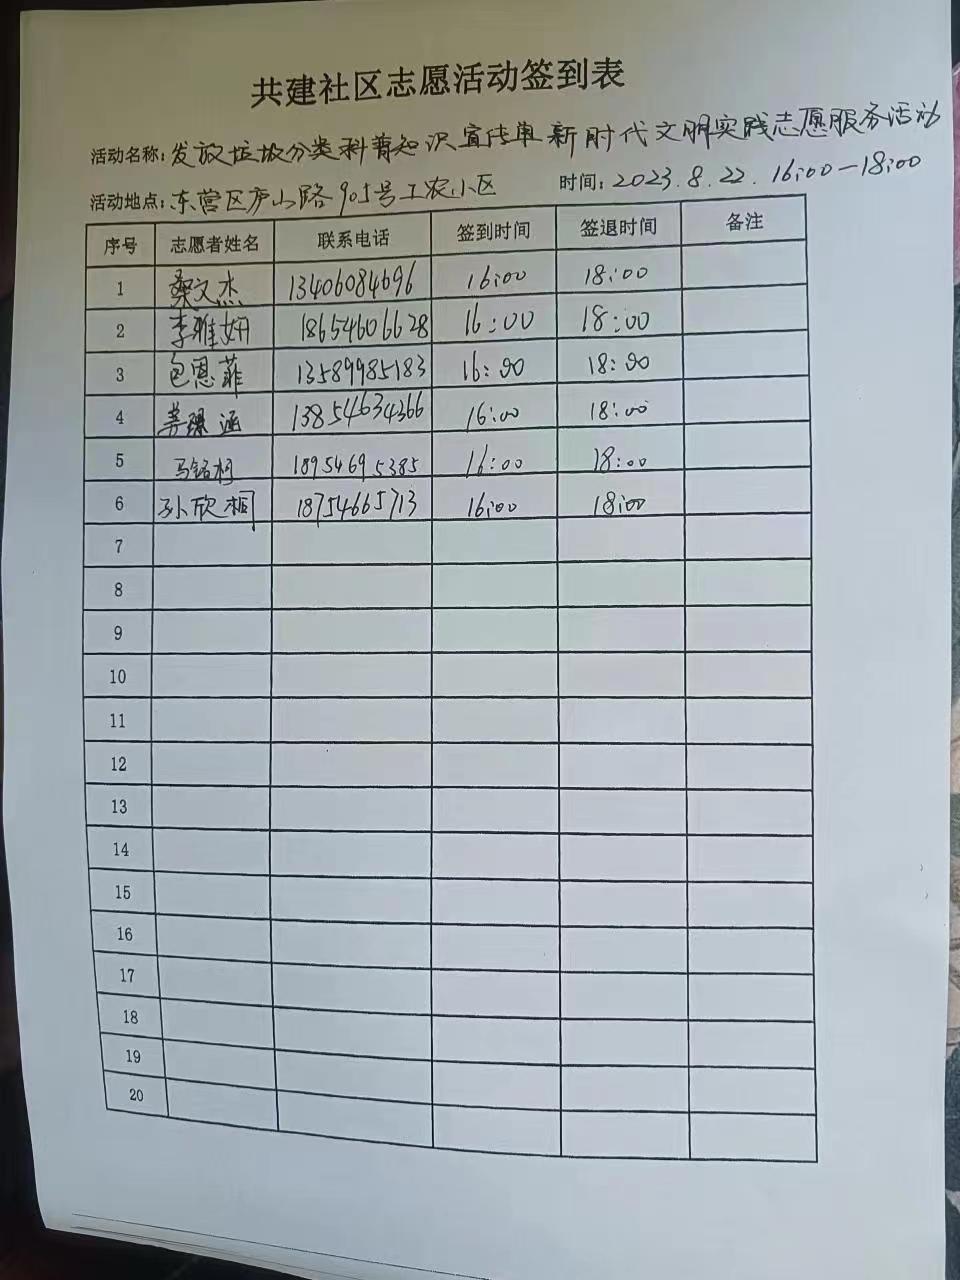 共建社区志愿活动签到表
活动名称:发放垃圾分类科普知识宣传单新时代文明实践志愿服务活动
活动地点:东营区庐山路905号工农小区 时间:2023.8.22.16:00-18:00
序号 志愿者姓名 联系电话 签到时间 签退时间 备注
1 桑文杰 13406084696 16:00 18:00
2 李雅妍 18654606628 16:00 18:00
3 包恩菲 13589985183 16:00 18:00
4 涵 13854634366 16:00 18:00
5 马铭柯 18954695385 16:00 18:00
6 孙欣桐 18754665713 16:00 18:00
7
8
9
10
11
12
13
14
15
16
17
18
19
20